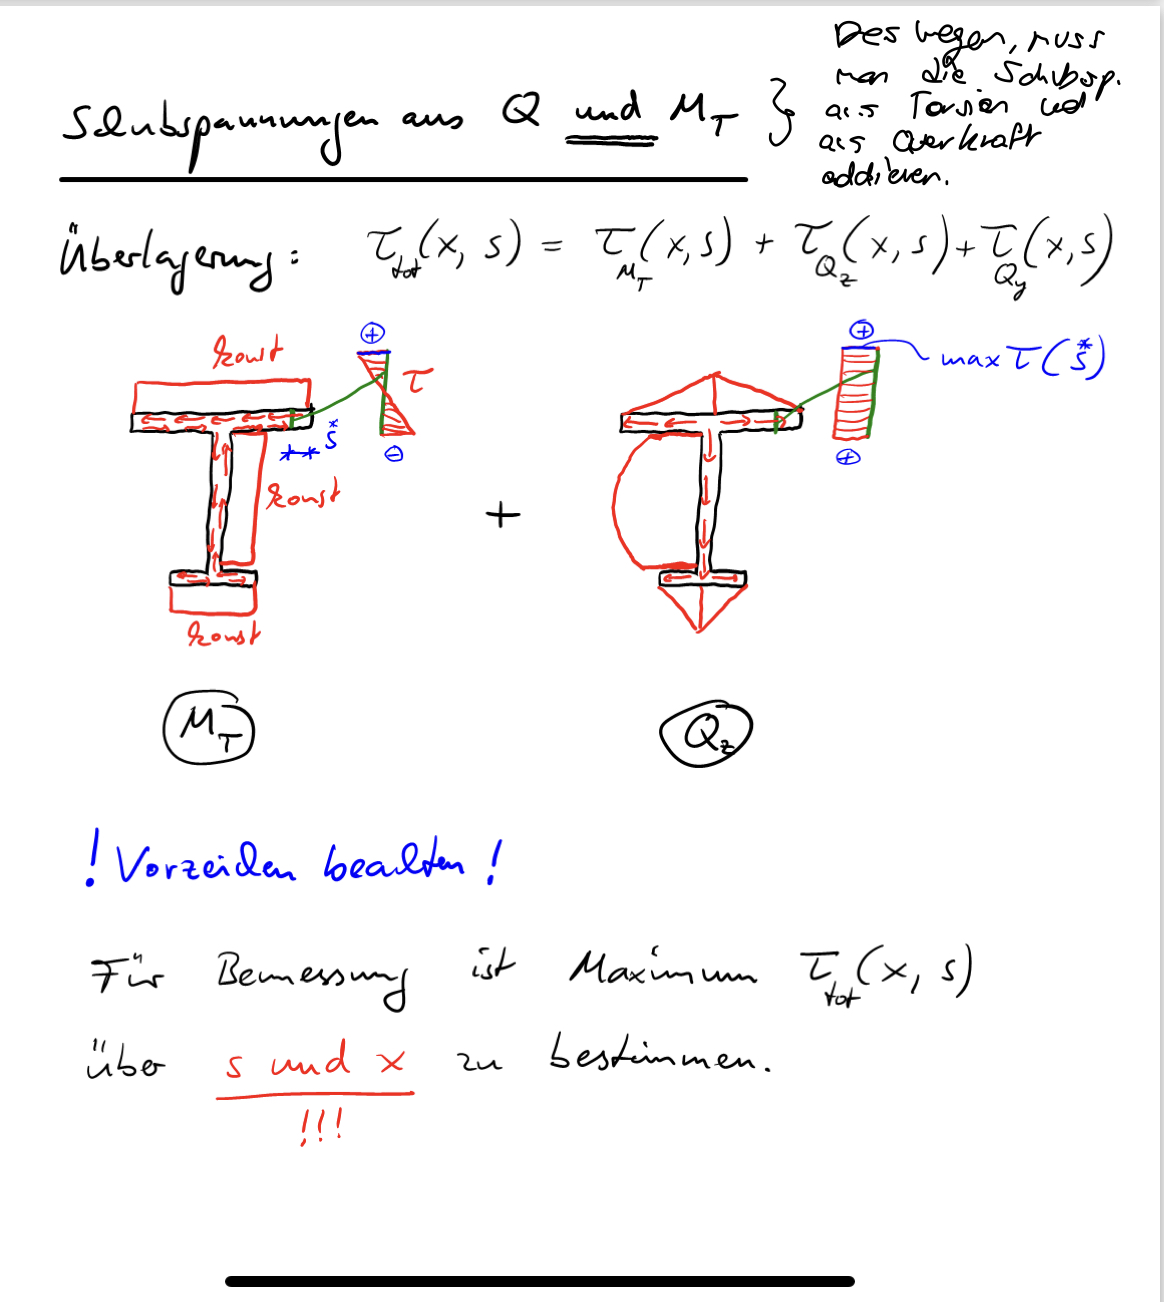 Schubspannungen aus Q und M_T }
Deswegen, muss
man die Schubsp.
aus Torsion und
aus Querkraft
addieren.
Überlagerung: τ_tot(x, s) = τ_M_T(x,s) + τ_Q_z(x,s) + τ_Q_y(x,s)
konst
⊕
τ
⊖
s*
konst
konst
+
⊕
max τ(s*)
⊕
M_T
Q_z
! Vorzeichen beachten !
Für Bemessung ist Maximum τ_tot(x, s)
über s und x zu bestimmen.
!!!